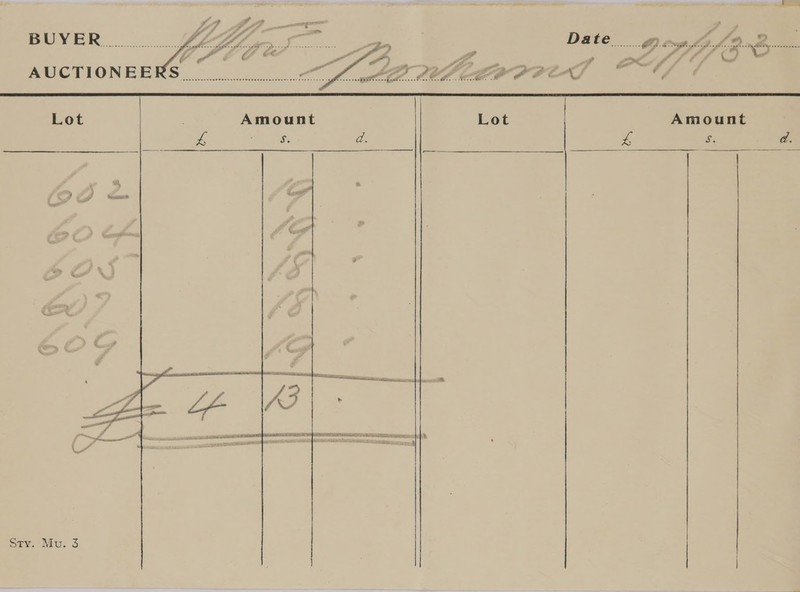 BUYER Date 27/1/33
AUCTIONEERS Bonhams
Lot Amount Lot Amount
£ s. d. £ s. d.
602 19 .
604 19 .
605 18 .
607 18 .
609 19 .
£ 4 13 .
STY. MU. 3